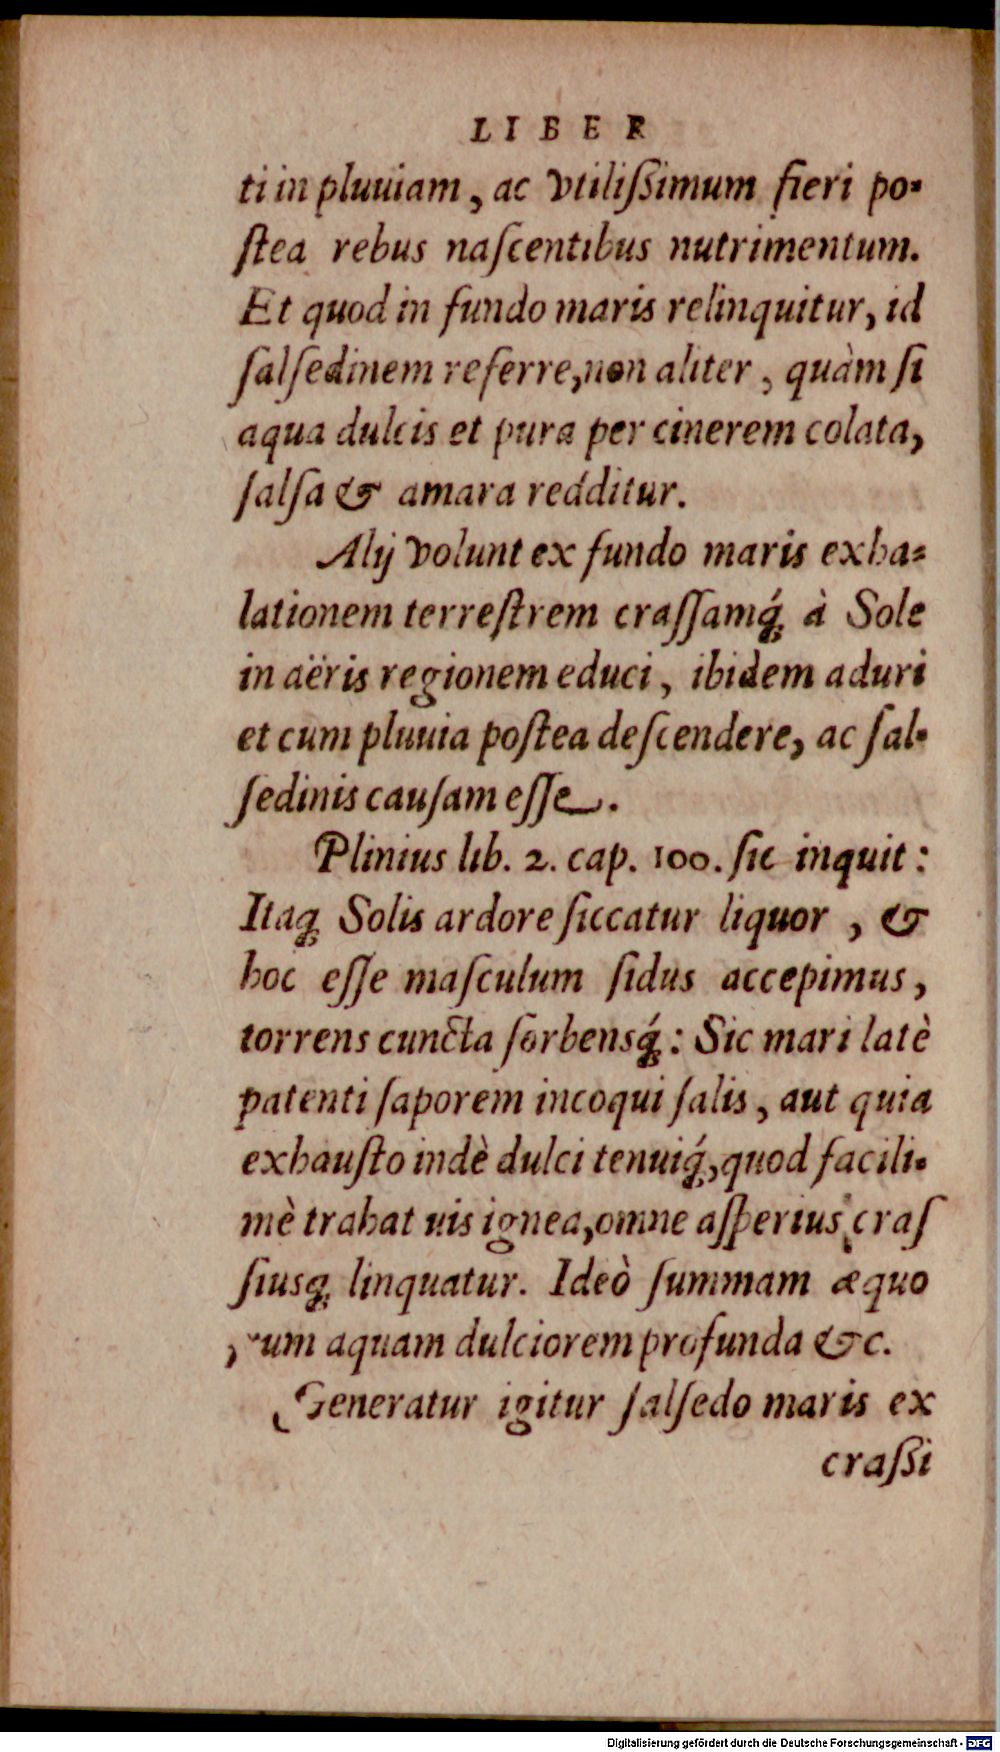 LIBER
ti in pluuiam, ac vtilißimum fieri po-
ſtea rebus naſcentibus nutrimentum.
Et quod in fundo maris relinquitur, id
ſalſedinem referre, non aliter, quàm ſi
aqua dulcis et pura per cinerem colata,
ſalſa & amara redditur.
Alij volunt ex fundo maris exha-
lationem terreſtrem craſſamq́; à Sole
in aëris regionem educi, ibidem aduri
et cum pluuia poſtea deſcendere, ac ſal-
ſedinis cauſam eſſe.
Plinius lib. 2. cap. 100. ſic inquit:
Itaq; Solis ardore ſiccatur liquor, &
hoc eſſe maſculum ſidus accepimus,
torrens cuncta ſorbensq́;: Sic mari latè
patenti ſaporem incoqui ſalis, aut quia
exhauſto indè dulci tenuiq́;, quod facili-
mè trahat uis ignea, omne aſperius craſ
ſiusq; linquatur. Ideò ſummam æquo
rum aquam dulciorem profunda &c.
Generatur igitur ſalſedo maris ex
craßi
Digitalisierung gefördert durch die Deutsche Forschungsgemeinschaft - DFG